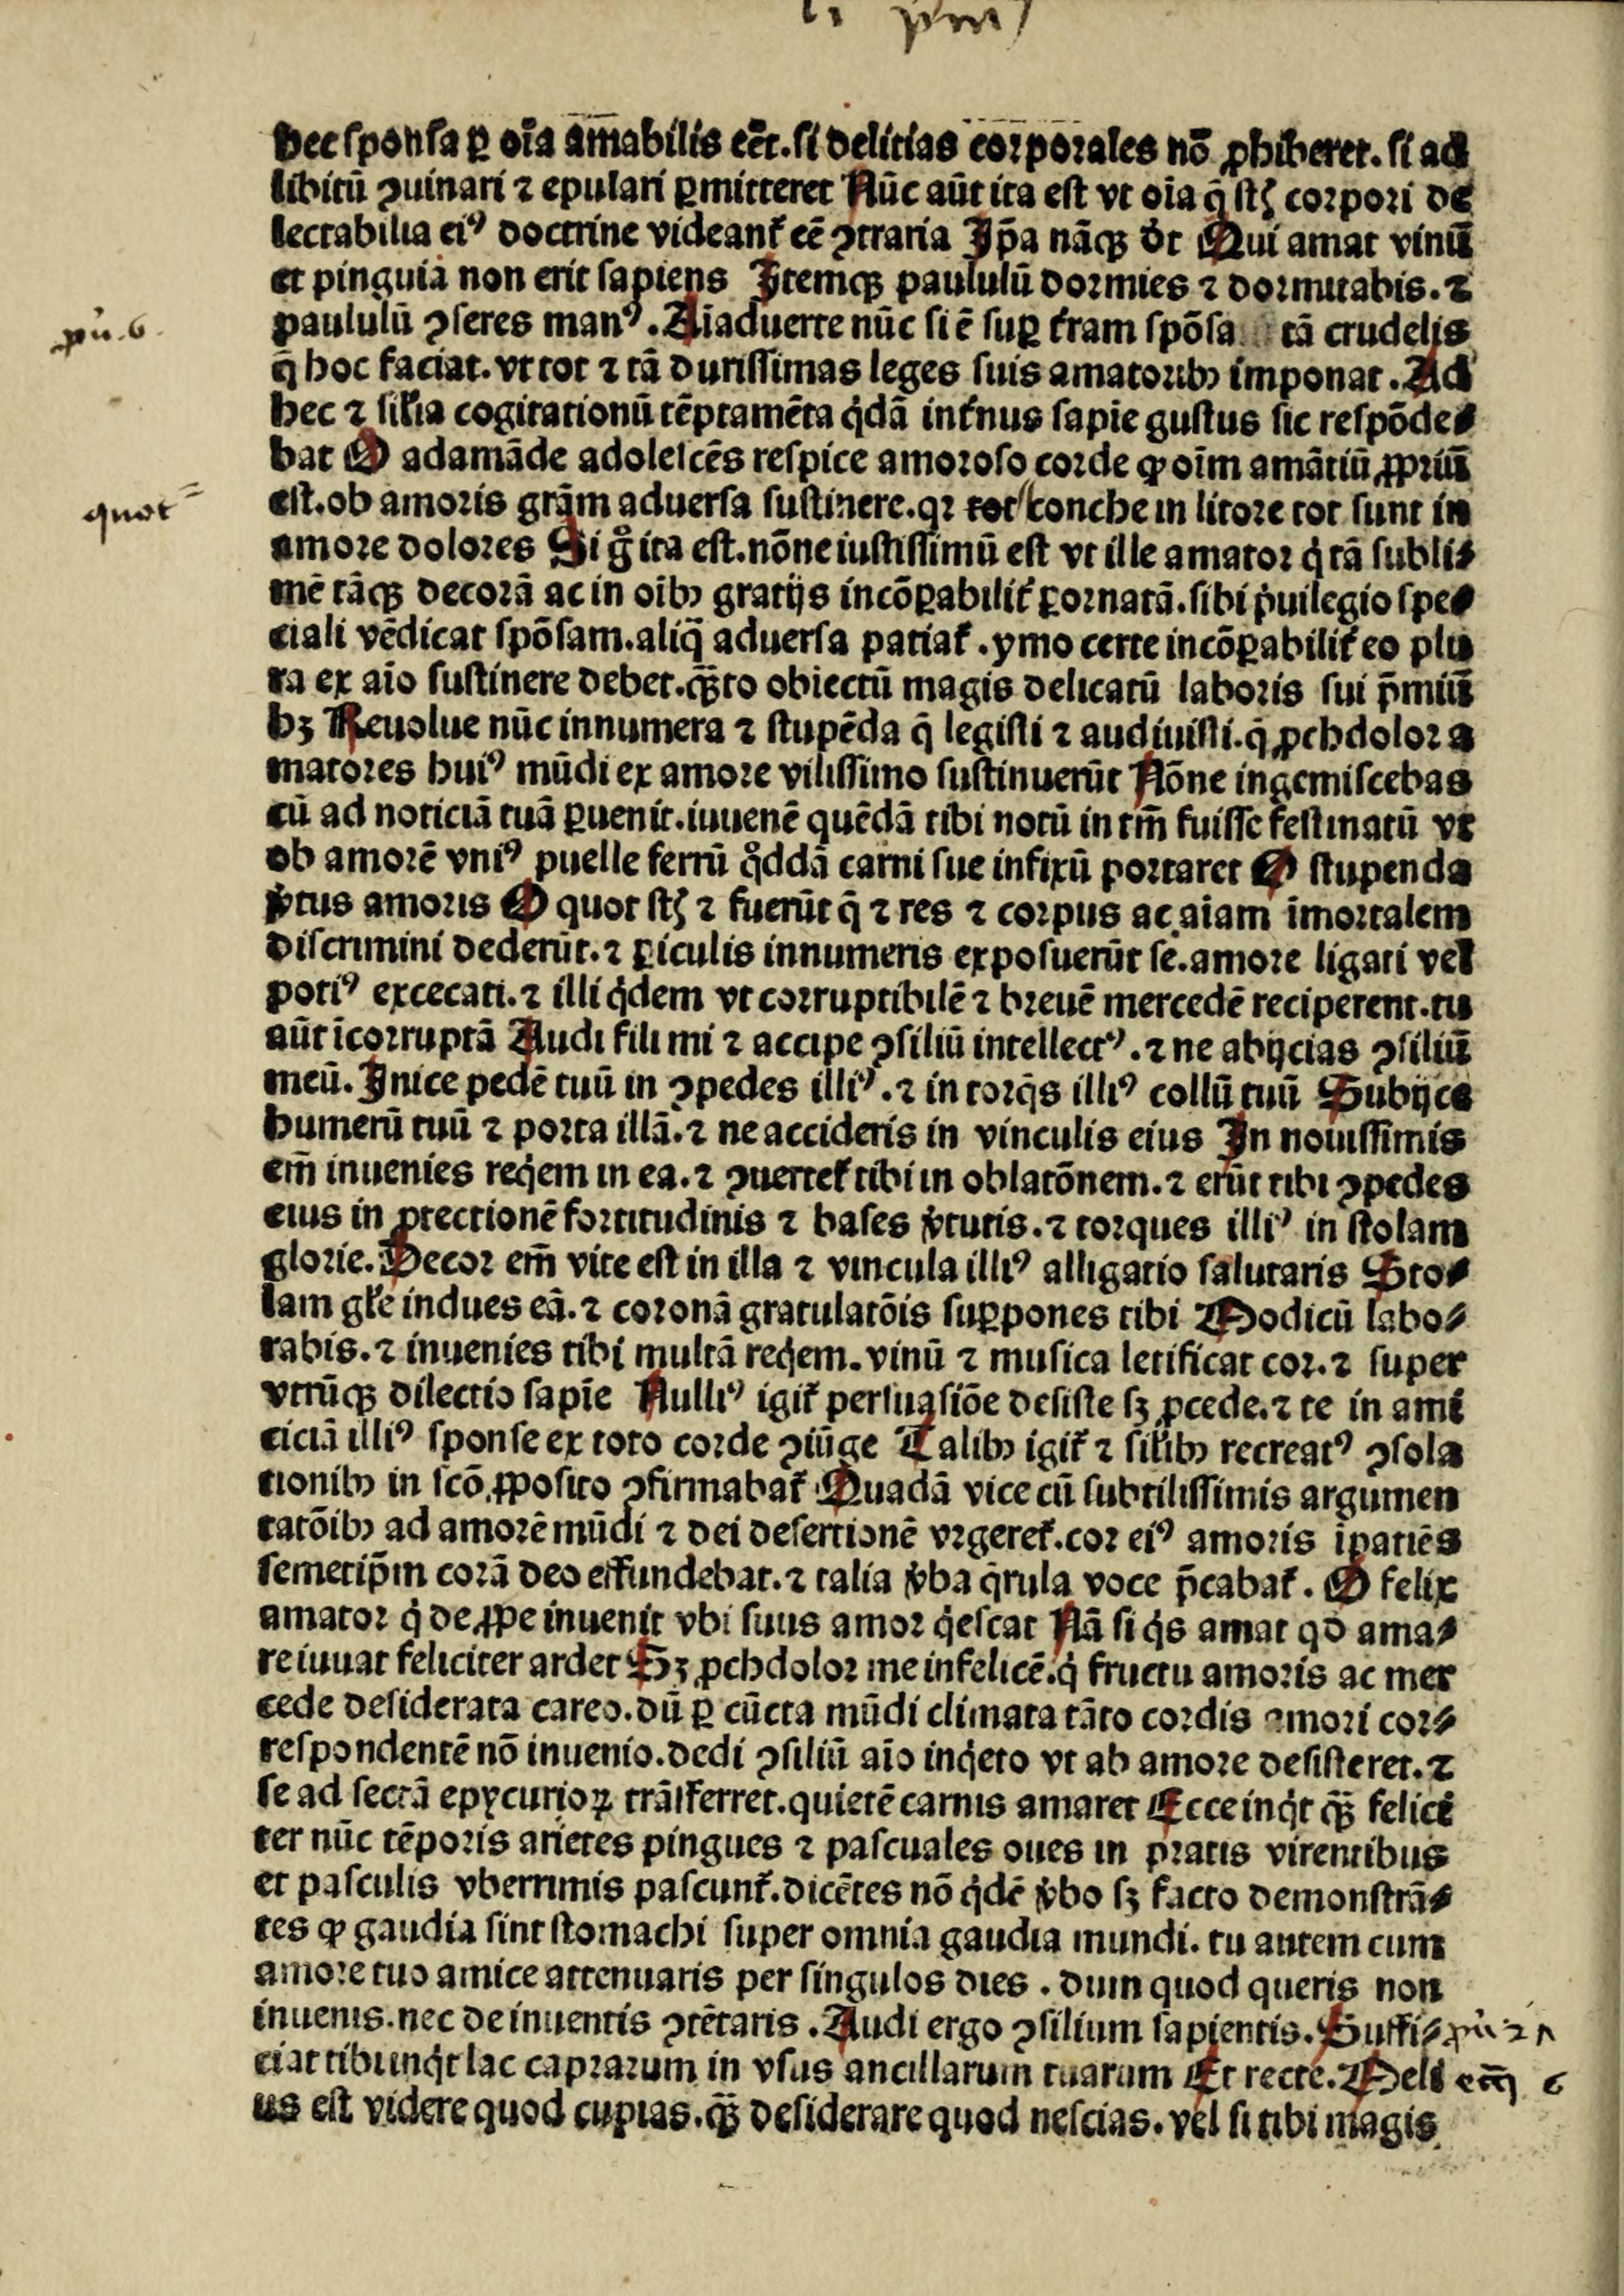 li pm̄
hec sponsa ꝑ oīa am̄abilis eēt. si delitias corporales nō ꝓhiberet. si ad
libitū ꝯuinari ⁊ epulari ꝑmitteret Nūc aūt ita est vt oīa q̄ stꝭ corpori de
lectabilia eiꝰ doctrine videant᷑ eē ꝯtraria Jp̄a nāqꝫ dr̄ Qui amat vinū
et pinguia non erit sapiens Jtemqꝫ paululū dormies ⁊ dormitabis. ⁊
pū. 6.
paululū ꝯseres manꝰ. Aīaduerte nūc si ē suꝑ t᷑ram spōsa tā crudelis
q̄ hoc faciat. vt tot ⁊ tā durissimas leges suis amatoribꝫ imponat. Ad
hec ⁊ sil̉ia cogitationū tēptamēta q̇dā int᷑nus sapīe gustus sic respōde⸗
bat O adamāde adolescēs respice amoroso corde ꝙ oīm amātiū ꝓpriū
quot⸗
est. ob amoris grām aduersa sustinere. qꝛ tot conche in litore tot sunt in
amore dolores Si gͦ ita est. nōne iustissimū est vt ille amator q̇ tā subli⸗
mē tāqꝫ decorā ac in oībꝫ gratijs incōꝑabilit᷑ ꝑornatā. sibi pͥuilegio spe⸗
ciali vēdicat spōsam. aliq̄ aduersa patiat᷑. ymo certe incōꝑabilit᷑ eo plu
ra ex aīo sustinere debet. qꝫ̄to obiectū magis delicatū laboris sui p̄miū
hꝫ Reuolue nūc innumera ⁊ stupēda q̄ legisti ⁊ audiuisti. q̄ ꝓchdolor a
matores huiꝰ mūdi ex amore vilissimo sustinuerūt Nōne ingemiscebas
cū ad noticiā tuā ꝑuenit. iuuenē quēdā tibi notū in tm̄ fuisse festinatū vt
ob amorē vniꝰ puelle ferrū qͦddā carni sue infixū portaret O stupenda
v̓tus amoris O quot stꝭ ⁊ fuerūt q̄ ⁊ res ⁊ corpus ac aīam īmortalem
discrimini dederūt. ⁊ ꝑiculis innumeris exposuerūt se. amore ligati vel
potiꝰ excecati. ⁊ illi q̇dem vt corruptibilē ⁊ breuē mercedē reciperent. tu
aūt īcorruptā Audi fili mi ⁊ accipe ꝯsiliū intellectꝰ. ⁊ ne abijcias ꝯsiliū
meū. Jnice pedē tuū in ꝯpedes illiꝰ. ⁊ in torq̄s illiꝰ collū tuū Subijce
humerū tuū ⁊ porta illā. ⁊ ne accideris in vinculis eius Jn nouissimis
em̄ inuenies req̇em in ea. ⁊ ꝯuertet᷑ tibi in oblatōnem. ⁊ erūt tibi ꝯpedes
eius in ꝓtectionē fortitudinis ⁊ bases v̓tutis. ⁊ torques illiꝰ in stolam
glorie. Decor em̄ vite est in illa ⁊ vincula illiꝰ alligatio salutaris Sto⸗
lam gl̉e indues eā. ⁊ coronā gratulatōis suꝑpones tibi Modicū labo⸗
rabis. ⁊ inuenies tibi multā req̇em. vinū ⁊ musica letificat cor. ⁊ super
vtrūqꝫ dilectio sapīe Nulliꝰ igit᷑ persuasiōe desiste sꝫ ꝓcede. ⁊ te in ami
ciciā illiꝰ sponse ex toto corde ꝯiūge Talibꝫ igit᷑ ⁊ sil̉ibꝫ recreatꝰ ꝯsola
tionibꝫ in scō ꝓposito ꝯfirmabat᷑ Quadā vice cū subtilissimis argumen
tatōibꝫ ad amorē mūdi ⁊ dei desertionē vrgeret᷑. cor eiꝰ amoris īpatiēs
semetip̄m corā deo effundebat. ⁊ talia v̓ba q̄rula voce p̄cabat᷑. O felix
amator q̇ de ꝓpe inuenit vbi suus amor q̇escat Nā si q̇s amat qd ama⸗
re iuuat feliciter ardet Sꝫ ꝓchdolor me infelicē. q̇ fructu amoris ac mer
cede desiderata careo. dū ꝑ cūcta mūdi climata tāto cordis amori cor⸗
respondentē nō inuenio. dedi ꝯsiliū aīo inq̇eto vt ab amore desisteret. ⁊
se ad sectā epycurioꝝ trāsferret. quietē carnis amaret Ecce inq̇t qꝫ̄ felici
ter nūc tēporis arietes pingues ⁊ pascuales oues in pratis virentibus
et pasculis vberrimis pascunt᷑. dicētes nō q̇dē v̓bo sꝫ facto demonstrā⸗
tes ꝙ gaudia sint stomachi super omnia gaudia mundi. tu autem cum
amore tuo amice attenuaris per singulos dies. dum quod queris non
inuenis. nec de inuentis ꝯtētaris. Audi ergo ꝯsilium sapientis. Suffi⸗
ciat tibi inq̇t lac caprarum in vsus ancillarum tuarum Et recte. Meli
us est videre quod cupias. qꝫ̄ desiderare quod nescias. vel si tibi magis